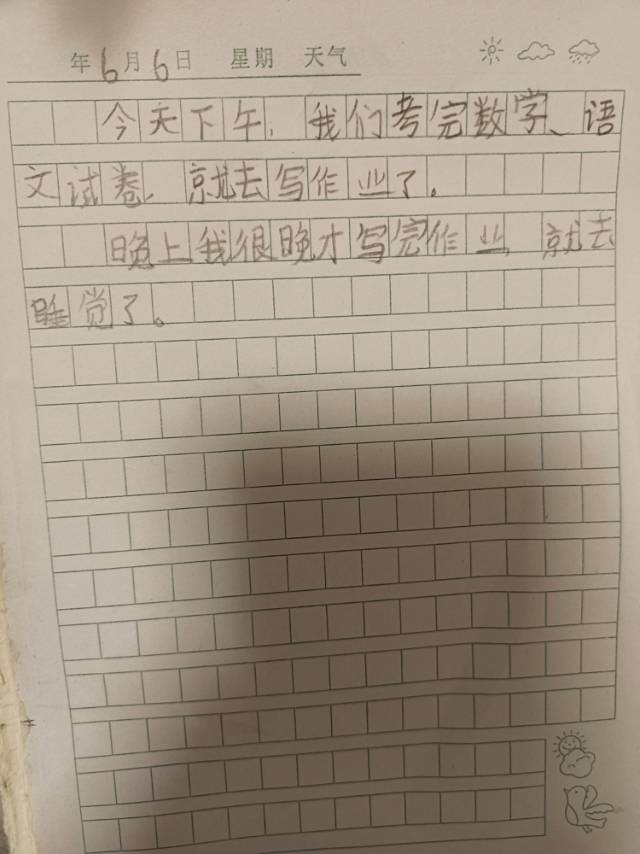 年6月6日 星期 天气
今天下午,我们考完数学、语
文试卷,就去写作业了。
晚上我很晚才写完作业,就去
睡觉了。